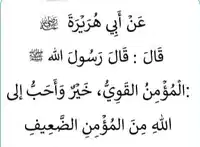 عَنْ أَبِي هُرَيْرَةَ ﷺ
قَالَ : قَالَ رَسُولَ الله ﷺ
:الْمُؤْمِنُ القَوِيُّ، خَيْرٌ وَأَحَبُّ إلى
اللهِ مِنَ المُؤْمِنِ الضَّعِيفِ